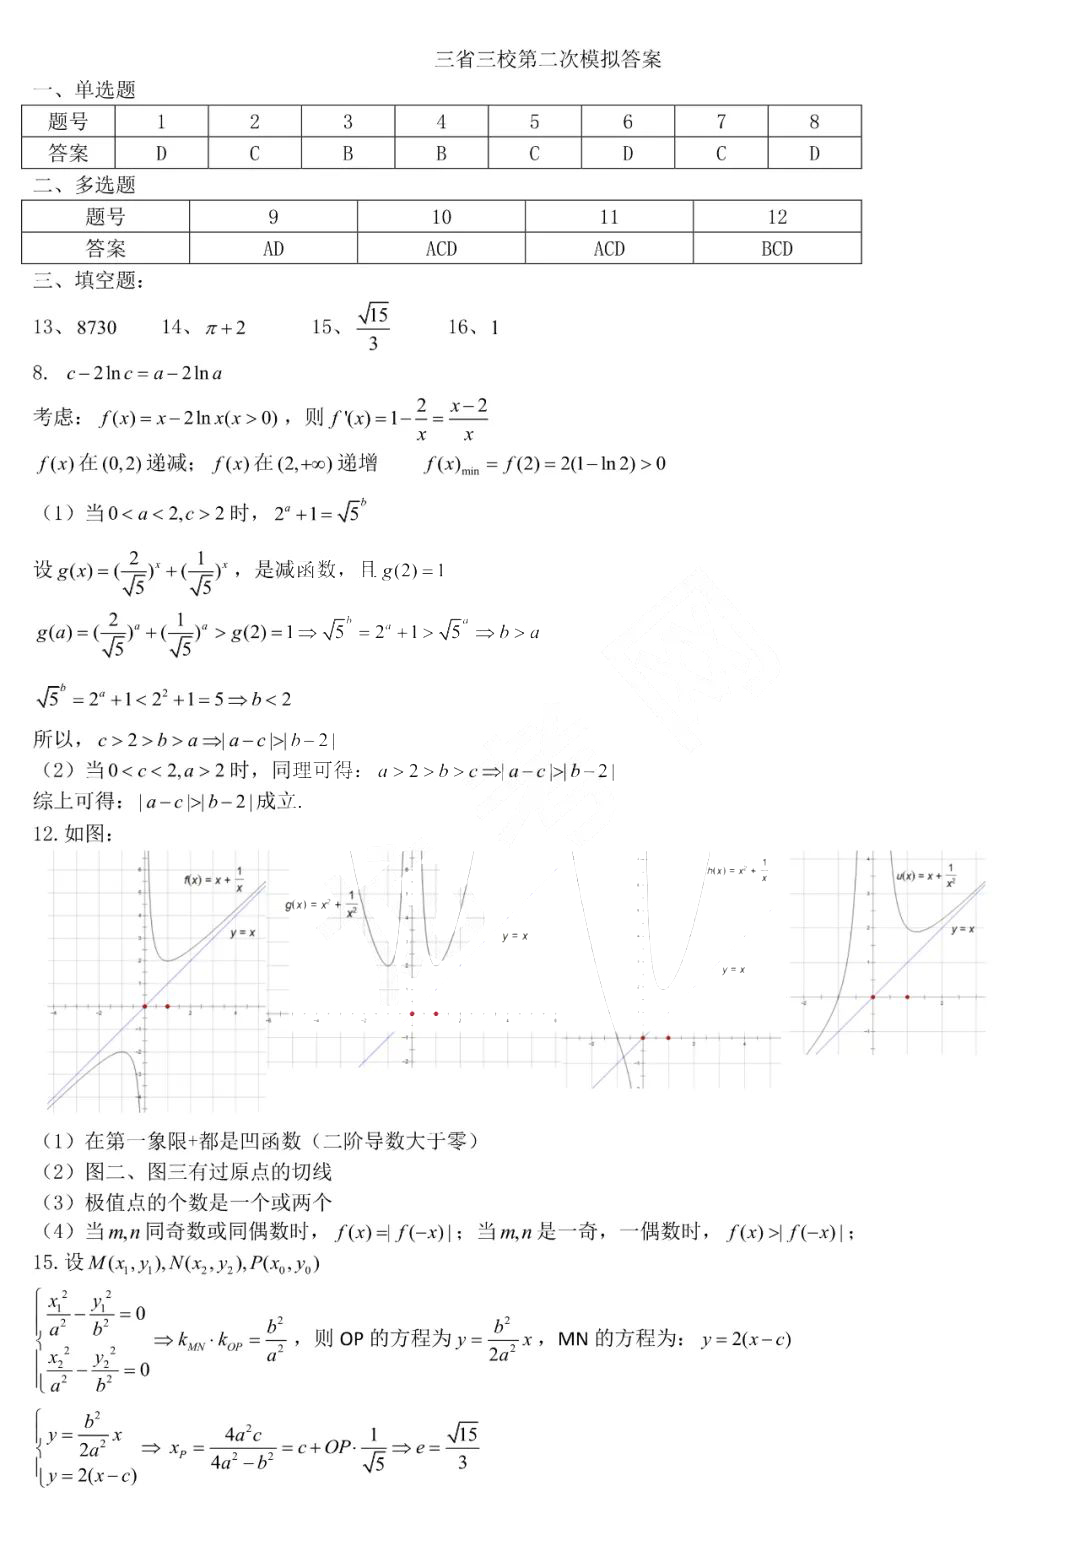 三省三校第二次模拟答案
一、单选题
题号 1 2 3 4 5 6 7 8
答案 D C B B C D C D
二、多选题
题号 9 10 11 12
答案 AD ACD ACD BCD
三、填空题:
13、8730 14、π+2 15、√15/3 16、1
8. c−2ln c=a−2ln a
考虑: f(x)=x−2ln x(x>0), 则 f'(x)=1−2/x=(x−2)/x
f(x)在(0,2)递减; f(x)在(2,+∞)递增 f(x)min=f(2)=2(1−ln 2)>0
(1)当0<a<2,c>2时, 2^a+1=√5^b
设g(x)=(2/√5)^x+(1/√5)^x, 是减函数, 且g(2)=1
g(a)=(2/√5)^a+(1/√5)^a>g(2)=1⇒√5^b=2^a+1>√5^a⇒b>a
√5^b=2^a+1<2^2+1=5⇒b<2
所以, c>2>b>a⇒|a−c|>|b−2|
(2)当0<c<2,a>2时, 同理可得: a>2>b>c⇒|a−c|>|b−2|
综上可得: |a−c|>|b−2|成立.
12.如图:
f(x) = x + 1/x
y = x
g(x) = x² + 1/x²
y = x
h(x) = x² + 1/x
y = x
u(x) = x + 1/x²
y = x
(1)在第一象限+都是凹函数(二阶导数大于零)
(2)图二、图三有过原点的切线
(3)极值点的个数是一个或两个
(4)当m,n同奇数或同偶数时, f(x)=|f(−x)|; 当m,n是一奇, 一偶数时, f(x)>|f(−x)|;
15.设M(x₁,y₁),N(x₂,y₂),P(x₀,y₀)
{x₁²/a²−y₁²/b²=0
x₂²/a²−y₂²/b²=0 ⇒k_MN·k_OP=b²/a², 则OP的方程为y=b²/(2a²)x, MN的方程为: y=2(x−c)
{y=b²/(2a²)x
y=2(x−c) ⇒x_P=4a²c/(4a²−b²)=c+OP·1/√5⇒e=√15/3